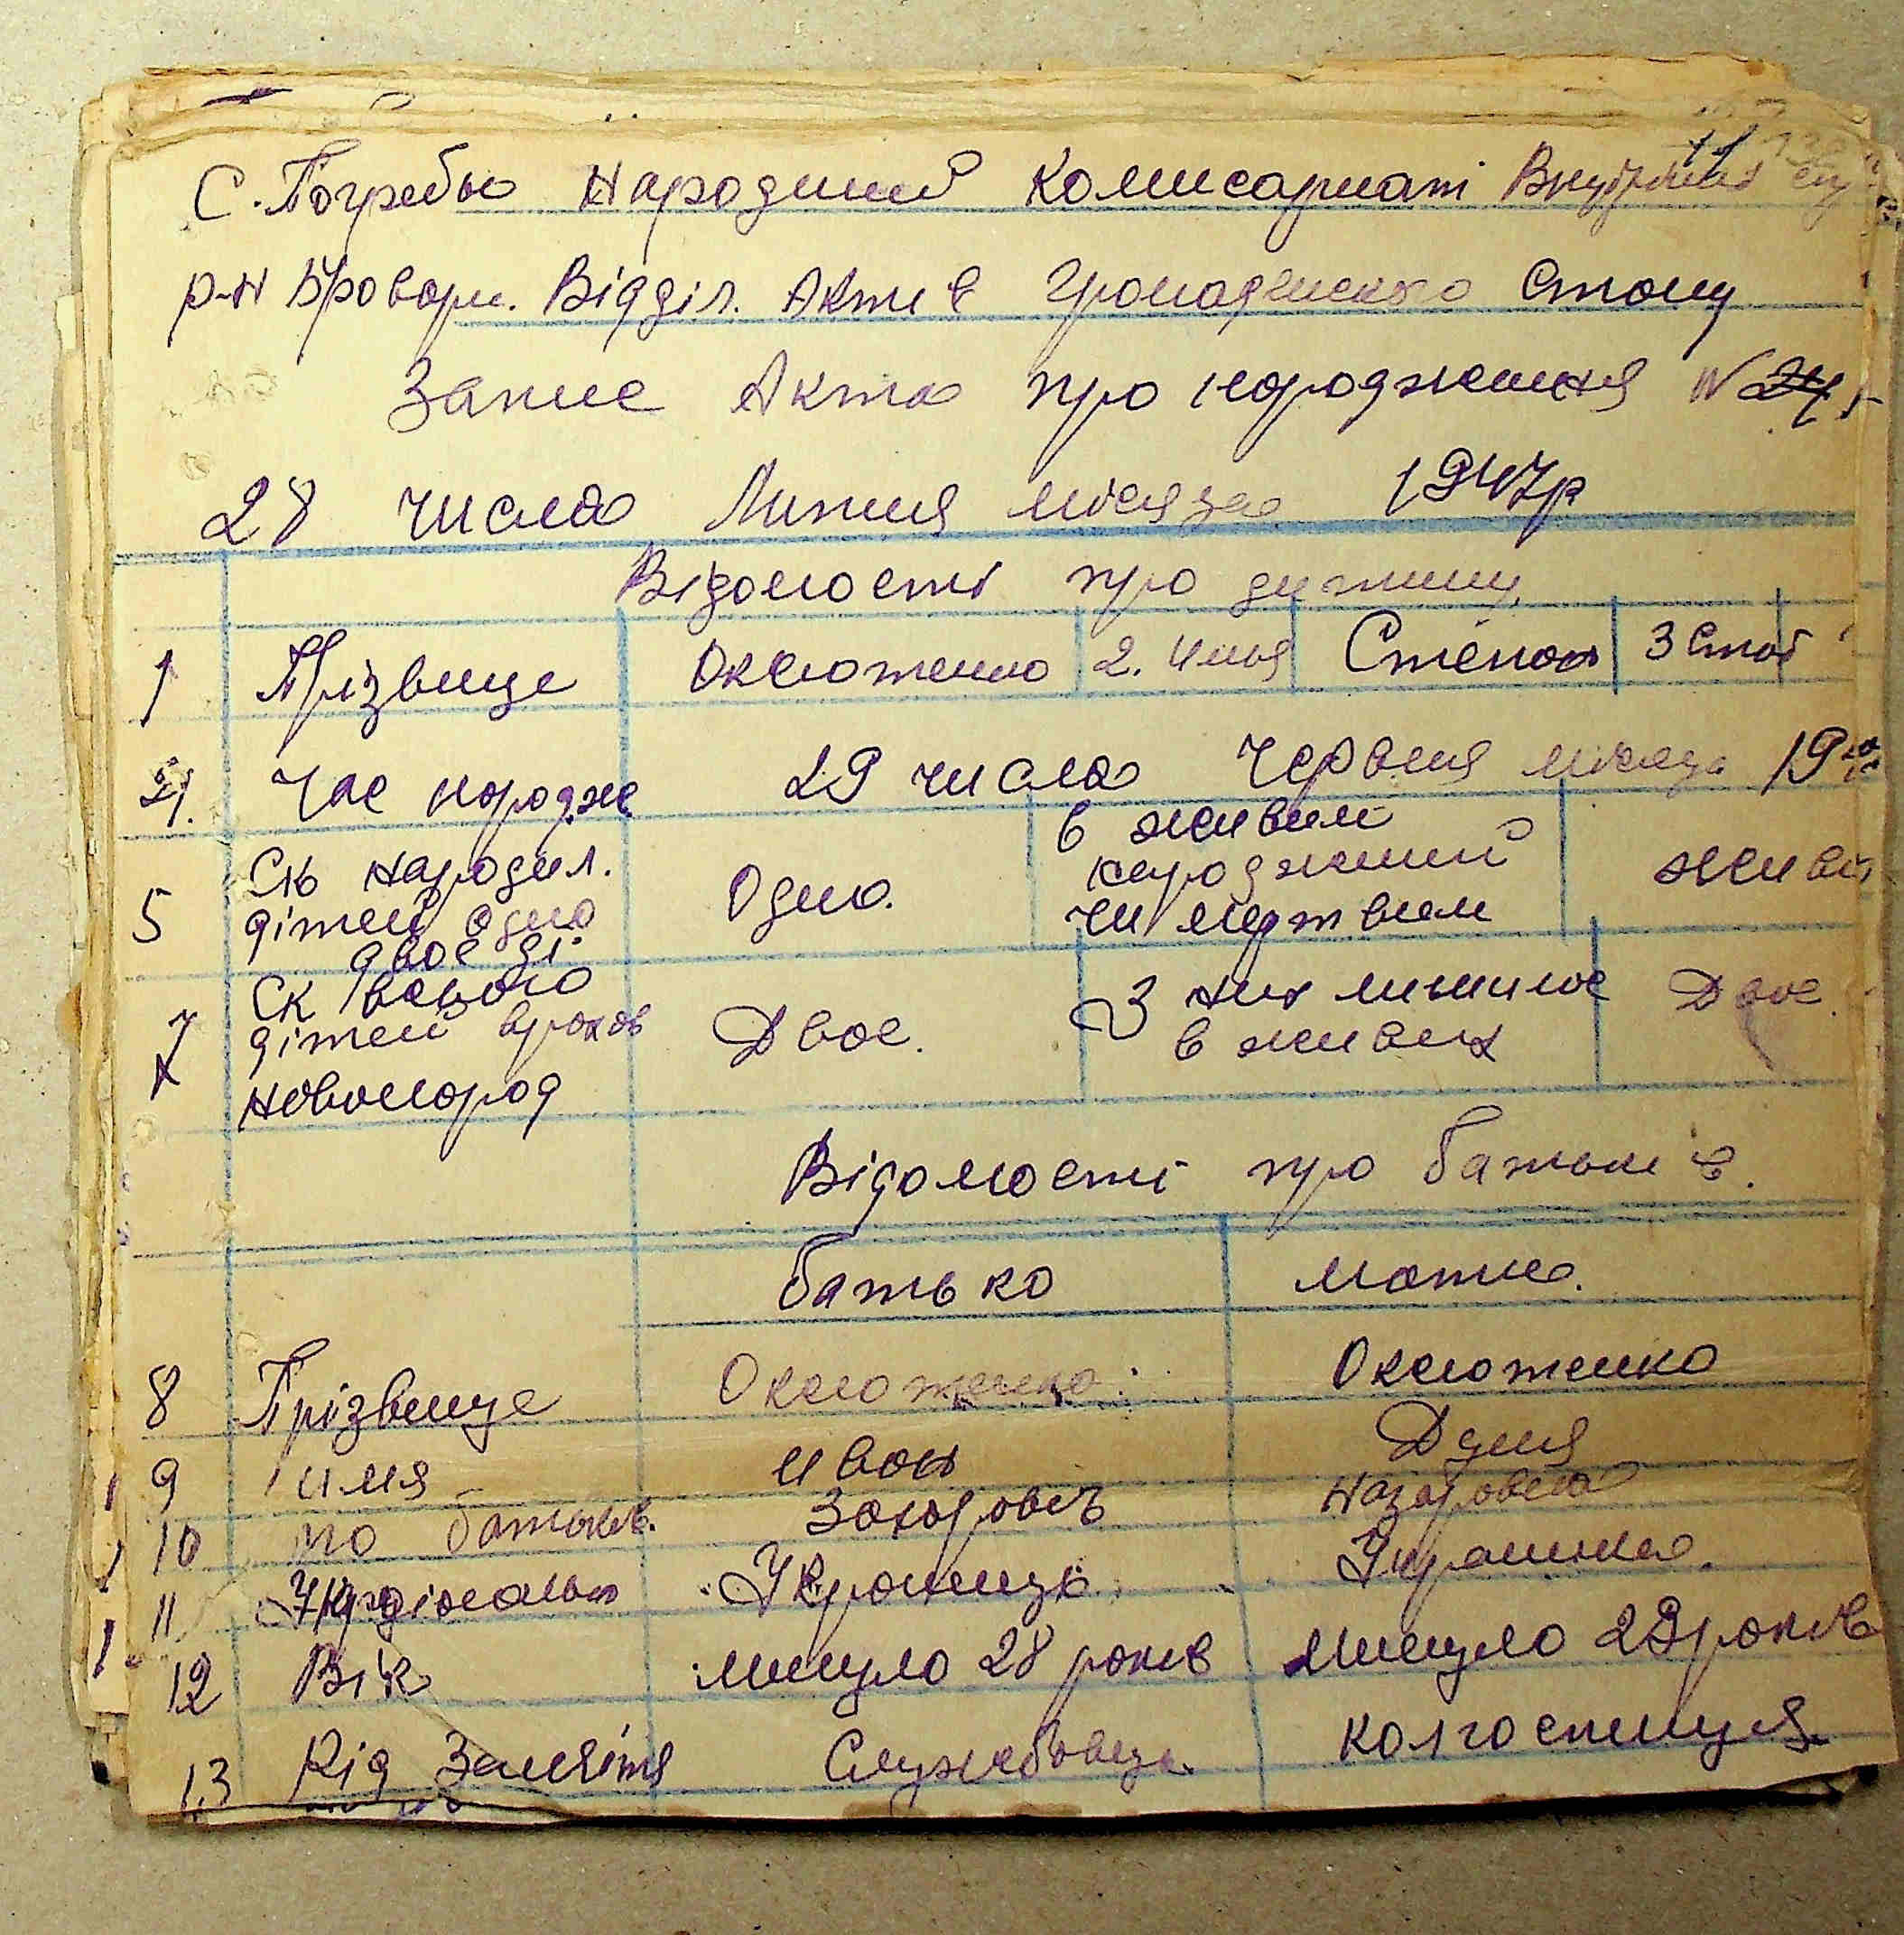 С. Погребы Народний Комисариат Внутрішніх
р-н Бровари. Відділ. Актив Громадянского Стану
Запис Акта про народження N
28 числа Липня місяца 1947р
Відомості про дитину
1 Прізвище Оксютенко 2. Имья Степан 3 Стать
4. Час народже 29 числа Червня місяца 19
5 Ск народил. дітей одно двоє ді. Одно. в живим народжений чи мертвим живи
7 Ск всього дітей врахов новонород Двоє. З них лишилос в живих Двоє.
Відомості про батьків.
батько мати.
8 Прізвище Оксютенко Оксютенко
9 имя Иван Дуня
10 по батькові. Захарович Назаровна
11 Украінець Украинка.
12 Вік минуло 28 років минуло 29 років
13 Рід Заняття Службовець. колгоспниця.